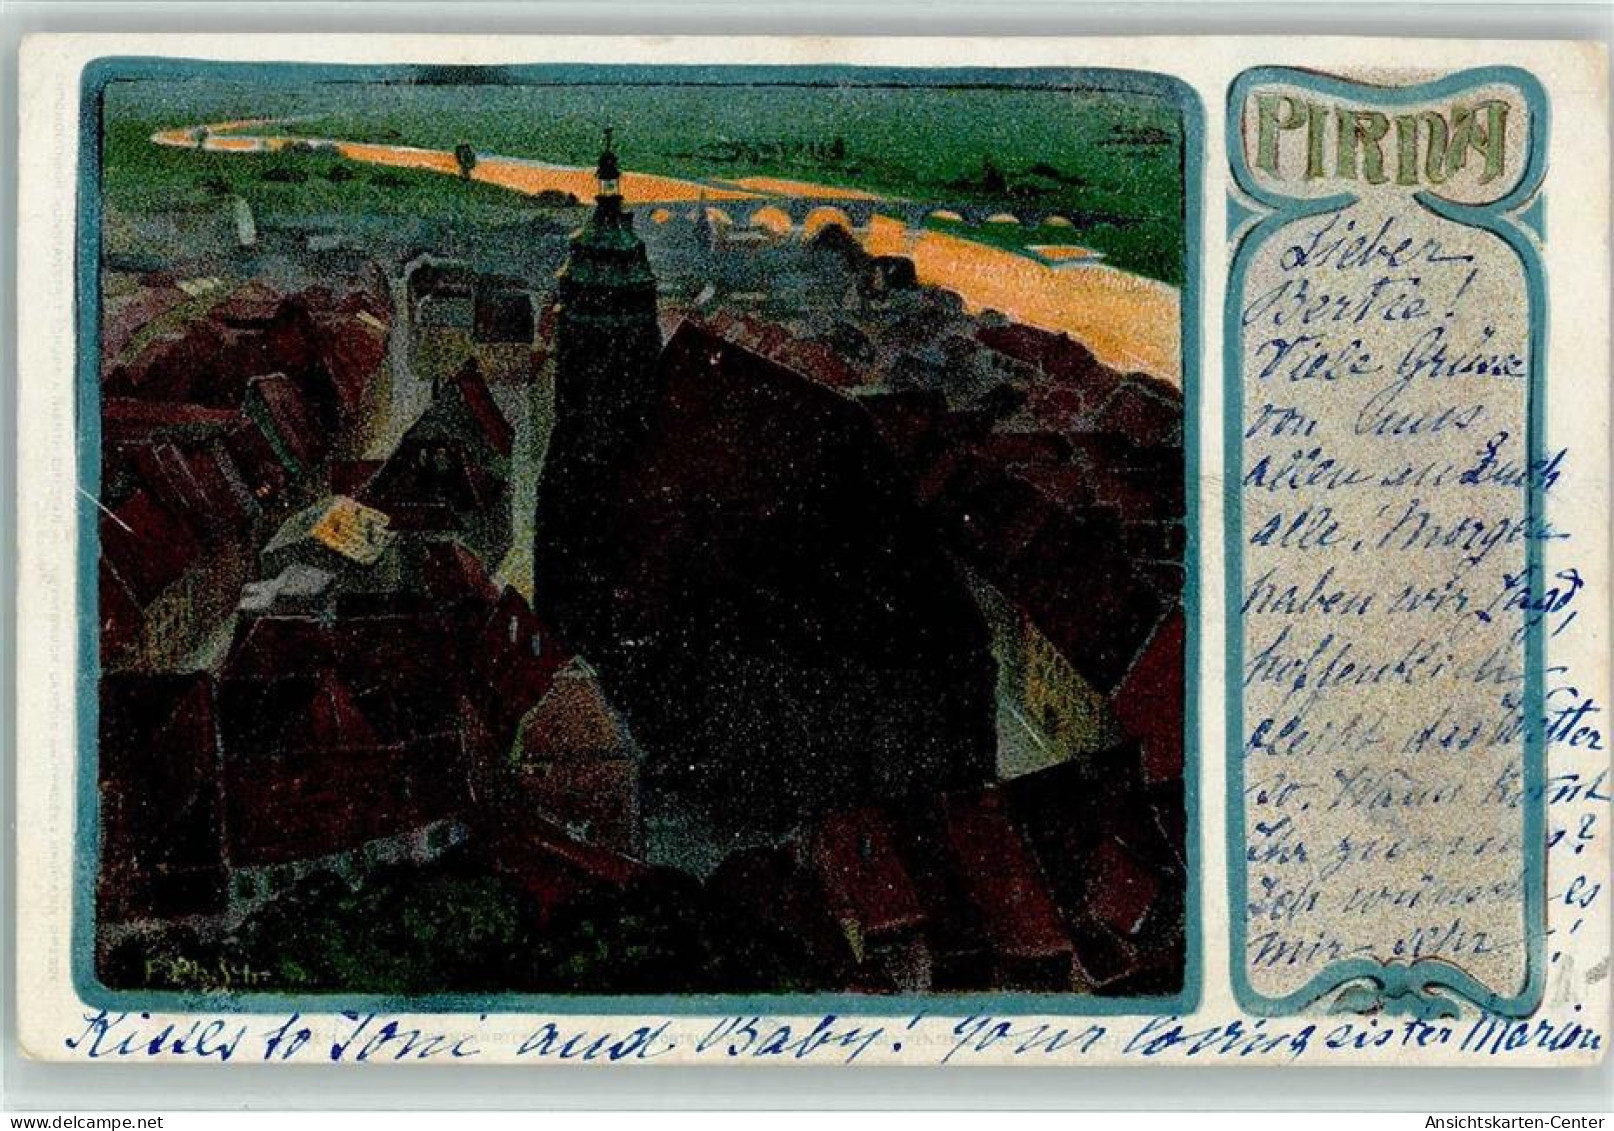 PIRNA
Lieber
Bertie!
Viele Grüsse
von uns
allen an Euch
alle! Morgen
haben wir Jagd,
hoffentlich
bleibt das Wetter
so. Wann kommt
Ihr zu uns?
Ich wünsche es
mir sehr!
Kisses to Toni and Baby! Your loving sister Marion
Ansichtskarten-Center